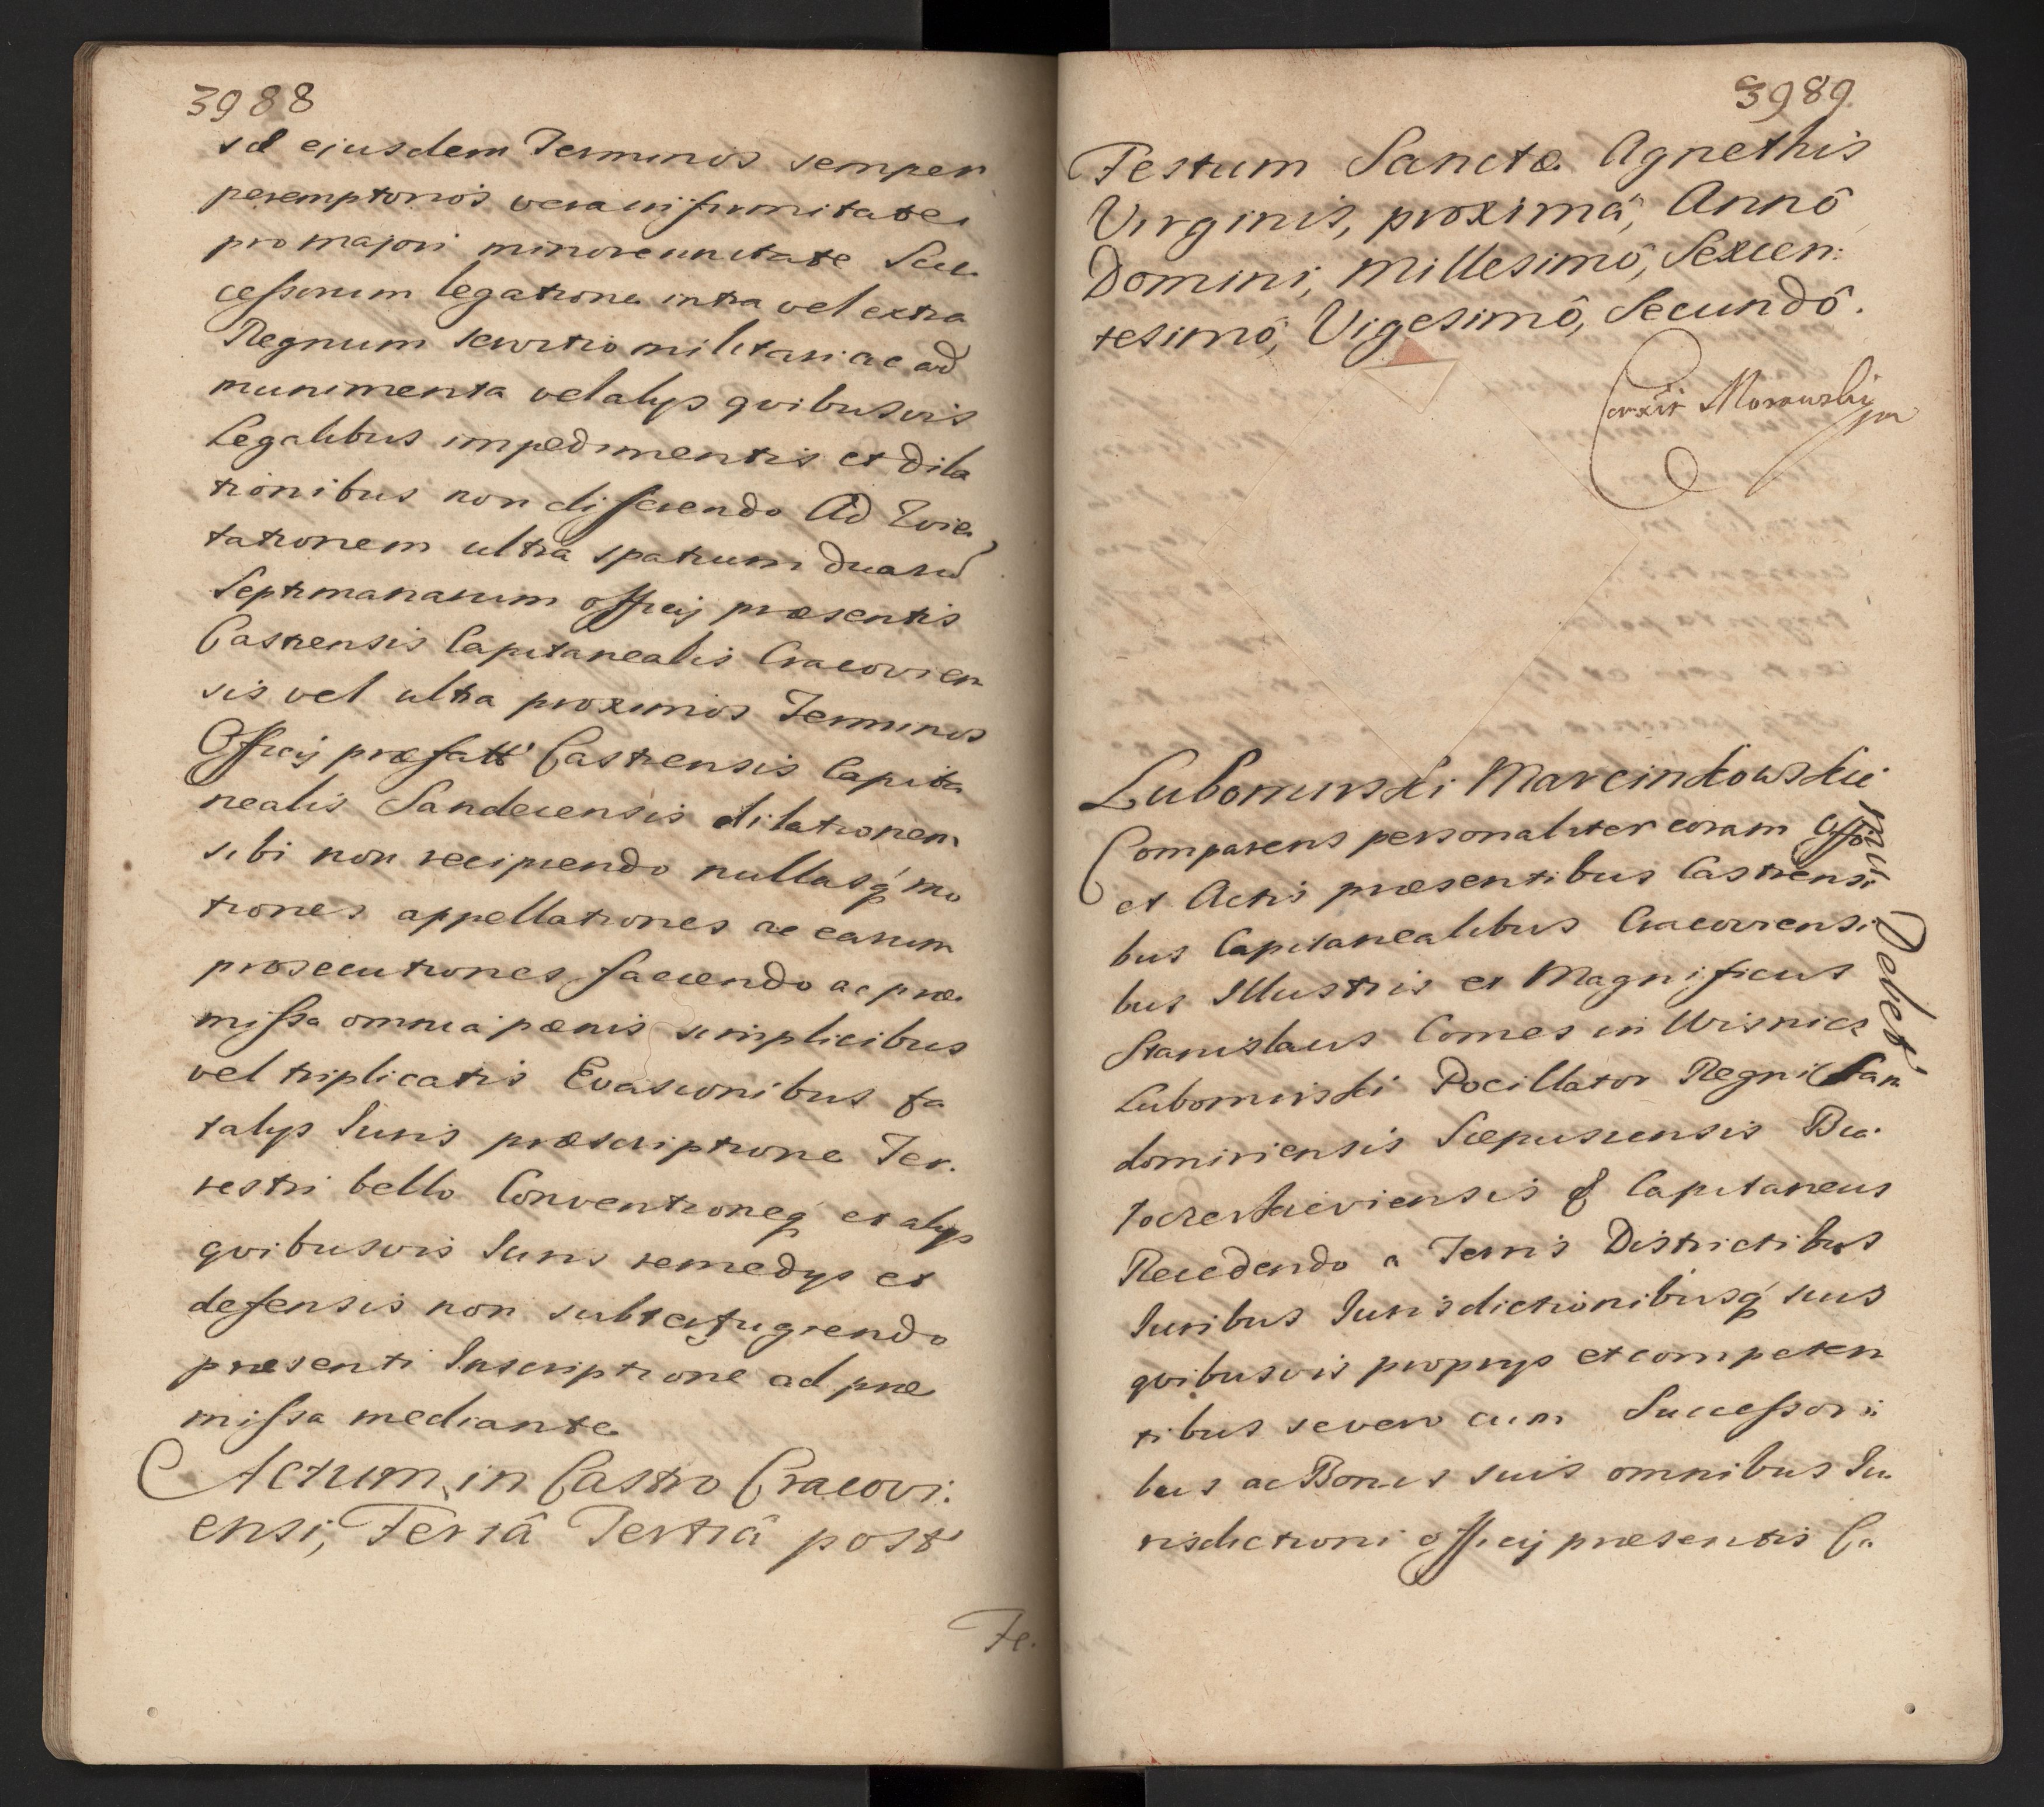 3988
sd ejusdem Terminos semper
peremptorios vera infirmitate
pro majori minore unitate Suc
cessorum legatione intra vel extra
Regnum servitio militari ac ad
munimenta vel alijs qvibusvis
Legalibus impedimentis et dila
tionibus non differendo Ad Evic
tationem ultra spatium duarū
Septimanarum officij præsentis
Castrensis Capitanealis Cracovien
sis vel ultra proximos Terminos
Officij præfatt Castrensis Capita
nealis Sandecensis dilationem
sibi non recipiendo nullasq́ mo
tiones appellationes ac earum
prosecutiones faciendo ac præ
missa omnia pænis simplicibus
vel triplicatis Evasionibus fa
talijs Iuris præscriptione Ter.
restri bello Conventioneq́ et alijs
qvibusvis Iuris remedijs et
defensis non subterfugiendo
præsenti Inscriptione ad præ
missa mediante
Actum, in Castro Cracovi:
ensi, Feriâ Tertiâ post
Fe.
3989
Festum Sanctæ Agnethis
Virginis, proximâ, Annô
Domini, Millesimô, Sexcen:
tesimô, Vigesimô, Secundô.
Correxit Morawski
mp
Lubomirski Marcinkowskie
mu Debet
Comparens personaliter coram Offo
et Actis præsentibus Castrensi
bus Capitanealibus Cracoviensi
bus Illustris et Magnificus
Stanislaus Comes in Wisnicz
Lubomirski Pocillator Regni San
domiriensis Scepusiensis Bia
łocerkieviensis & Capitaneus
Recedendo a Terris Districtibus
Iuribus Iurisdictionibusq́ suis
qvibusvis proprijs et competen
tibus se vero cum Successori
bus ac Bonis suis omnibus Iu
risdictioni officij præsentis Ca